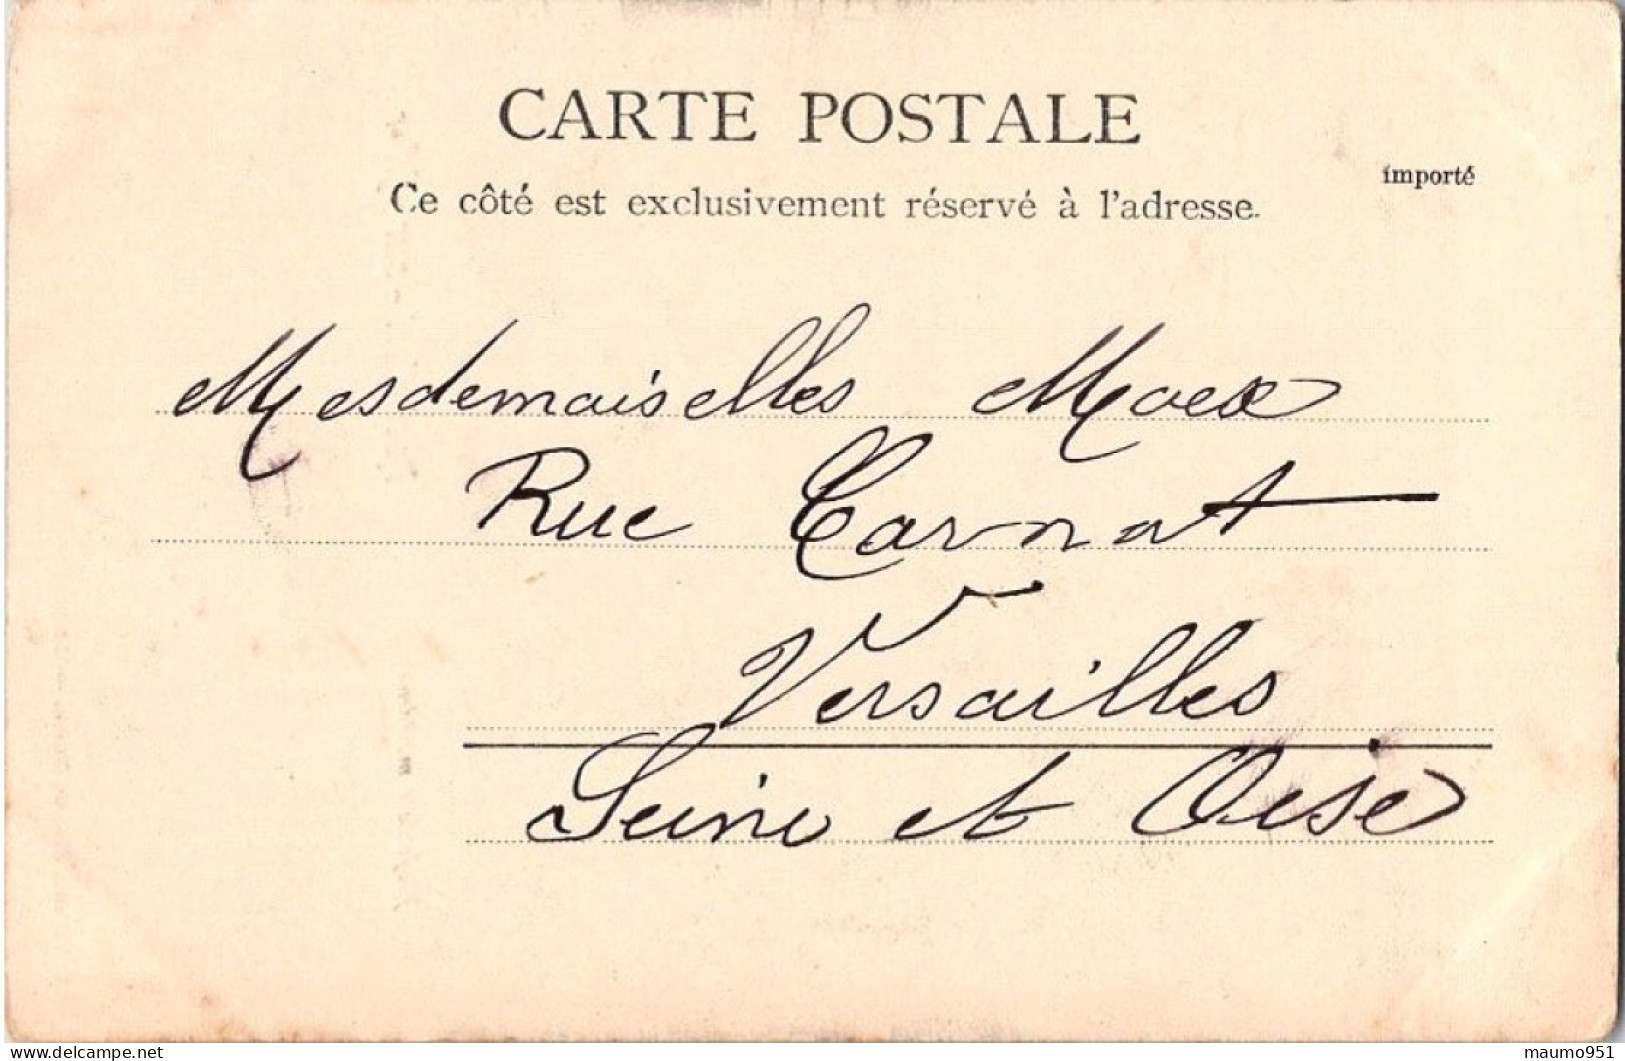 CARTE POSTALE
importé
Ce côté est exclusivement réservé à l'adresse.
Mesdemoiselles
Rue Carnot
Versailles
Seine et Oise
delcampe.net
maumo951